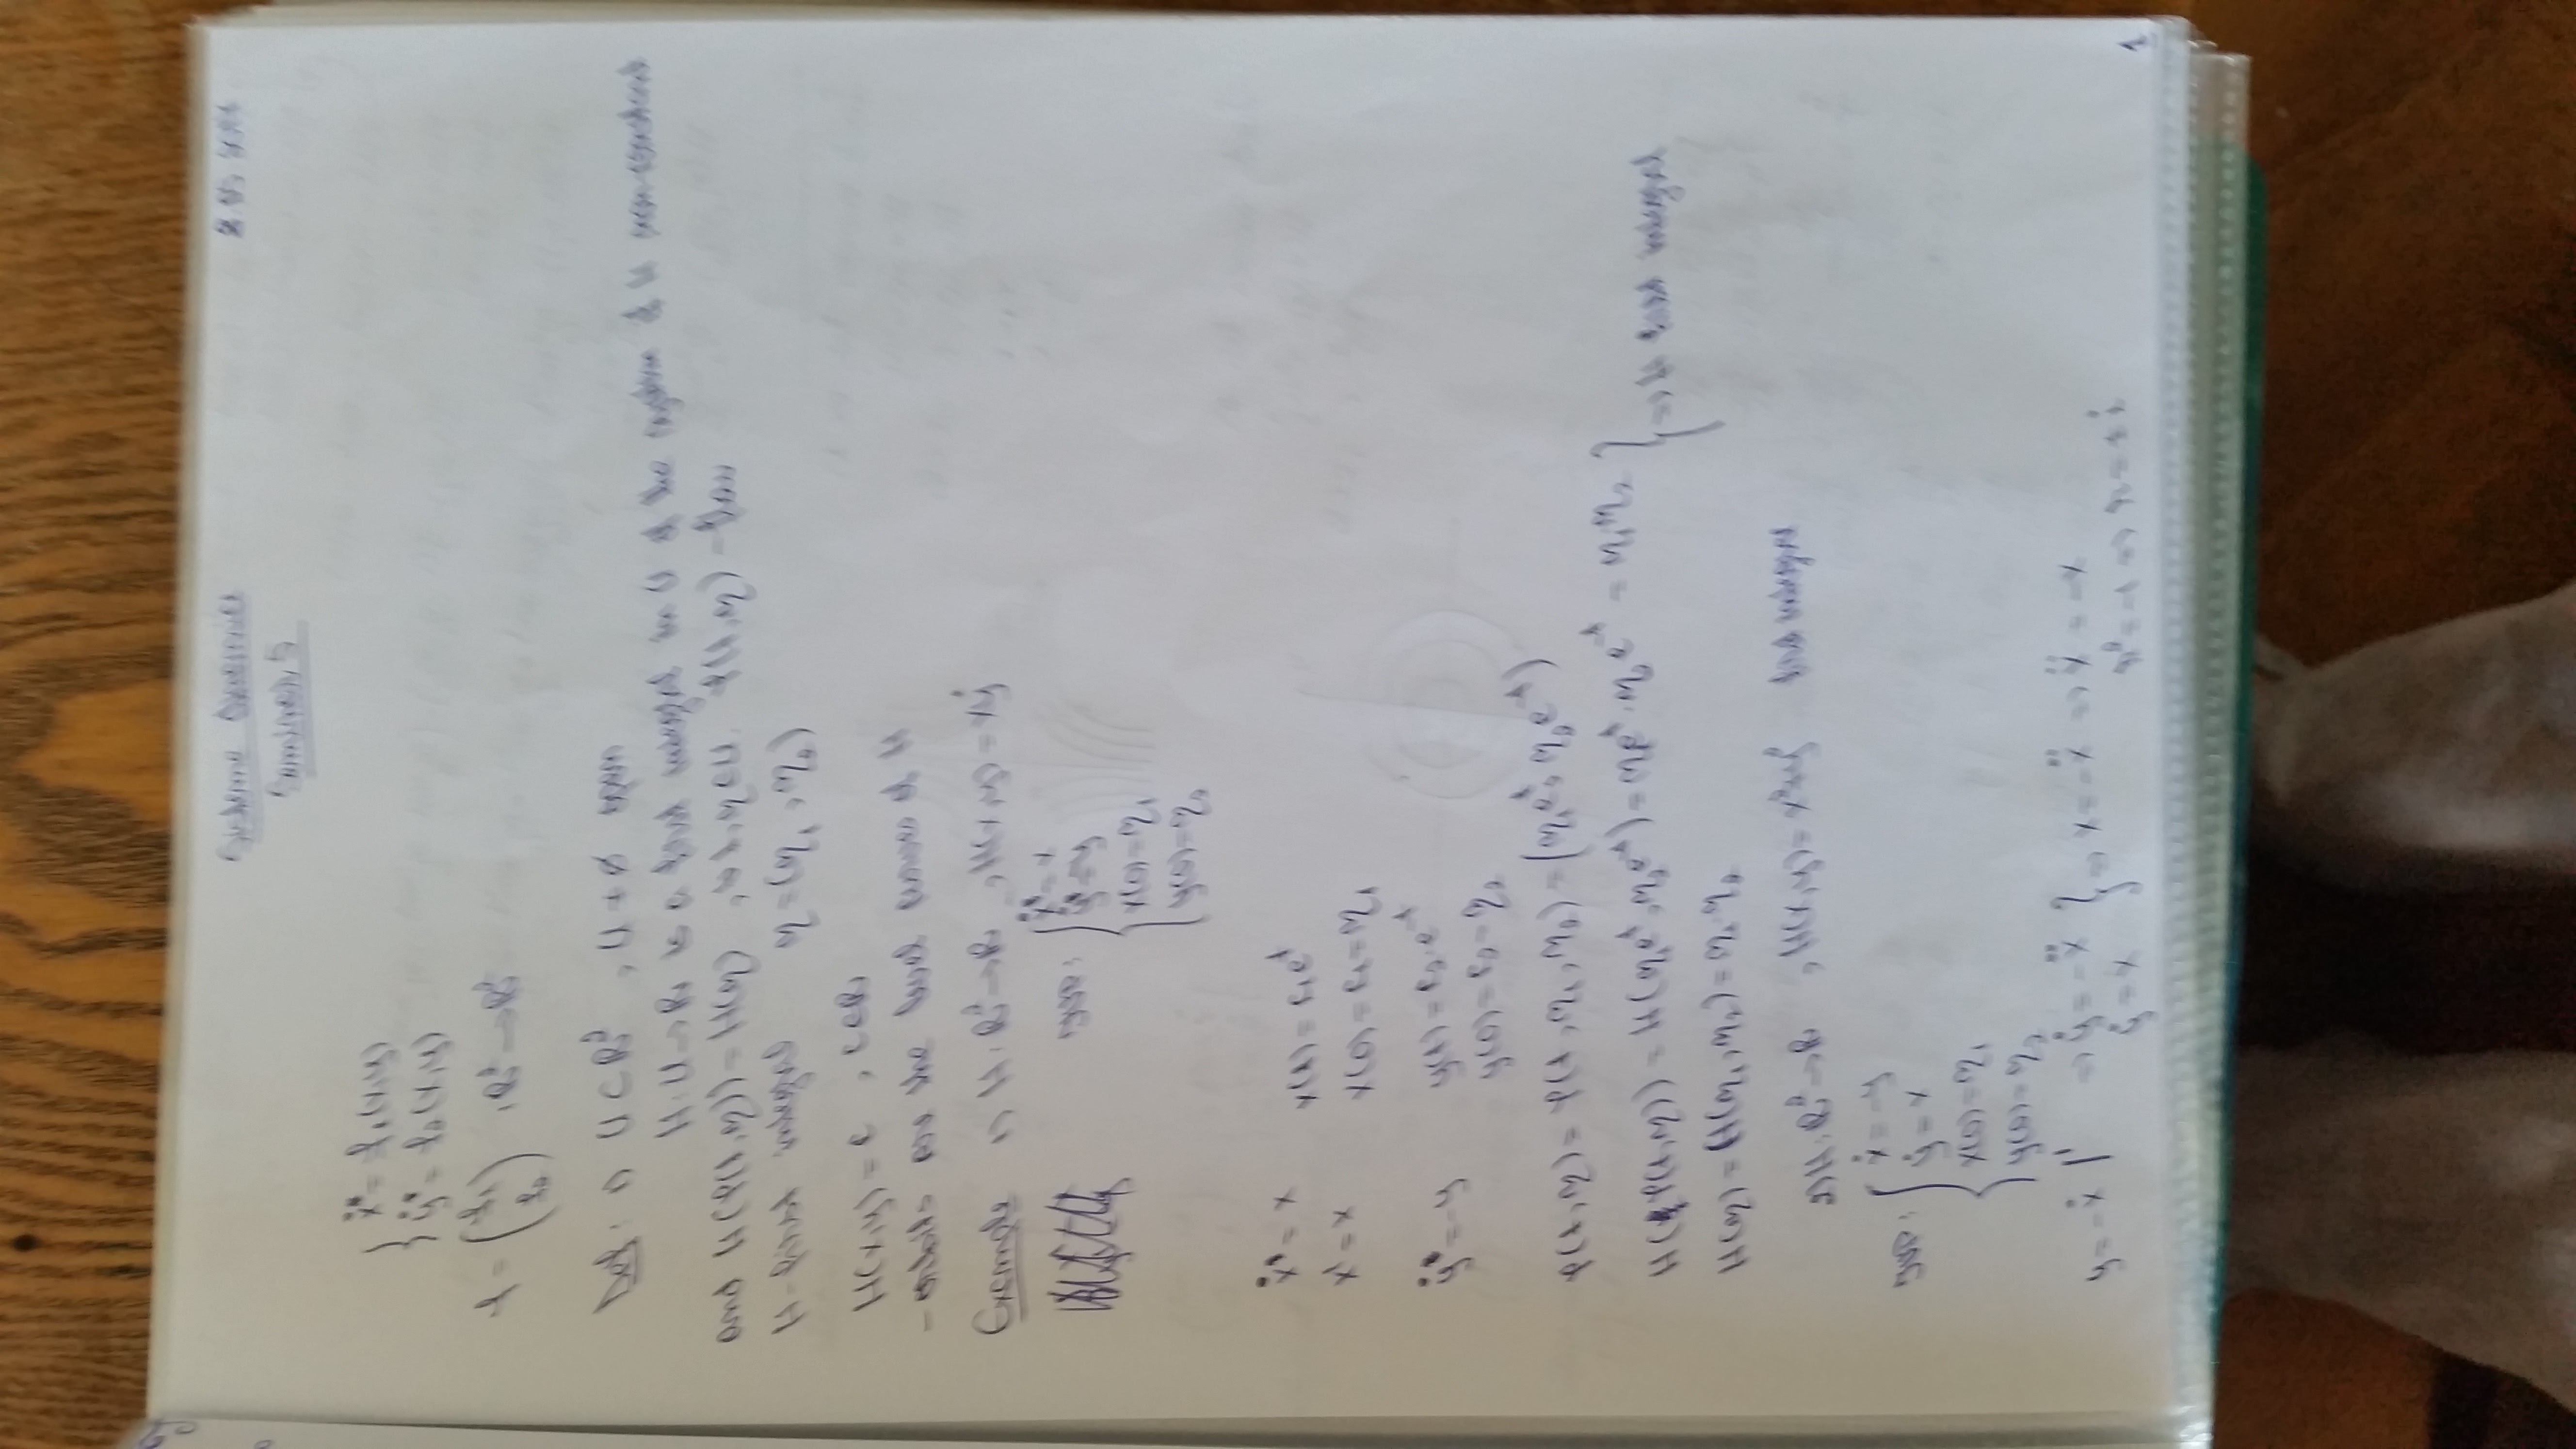 Sisteme Dinamice
Seminar 5
{ ẋ = f₁(x,y)
ẏ = f₂(x,y)
f = (f₁ f₂) : R² → R²
Def: 1) U ⊂ R², U ≠ ∅ open
H: U → R is a first integral in U of the system if H non-constant
and H(φ(t,η)) = H(η), ∀ t, η ∈ U. φ(t,η) - flow
H - first integral η = (η₁, η₂)
H(x,y) = c, c ∈ R
- orbits are the level curves of H
Example 1) H: R² → R, H(x,y) = xy
IVP: { ẋ = x
ẏ = -y
x(0) = η₁
y(0) = η₂
ẋ = x x(t) = c₁e^t
x' = x x(0) = c₁ = η₁
ẏ = -y y(t) = c₂·e^-t
y(0) = c₂ = η₂
φ(t,η) = φ(t, η₁, η₂) = (η₁e^t, η₂e^-t)
H(φ(t,η)) = H(η₁e^t, η₂e^-t) = η₁e^t · η₂e^-t = η₁η₂ } => H first integral
H(η) = H(η₁, η₂) = η₁·η₂
2) H: R² → R, H(x,y) = x²+y² first integral
IVP: { ẋ = -y
ẏ = x
x(0) = η₁
y(0) = η₂
y = -ẋ |' => ẏ = -ẍ } => x = -ẍ => ẍ = -x
ẏ = x r² = -1 => r = ± i
1